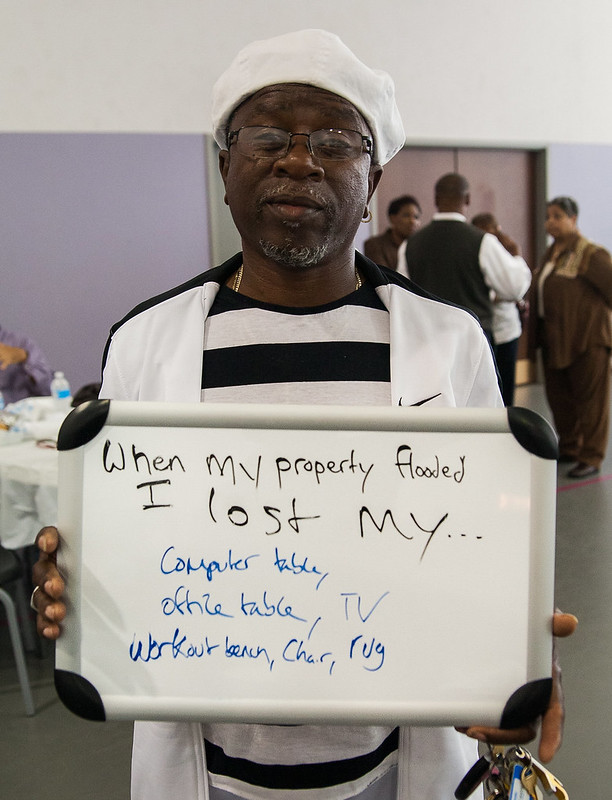 When my property flooded
I lost my...
Computer table,
office table, TV
Workout bench, Chair, rug